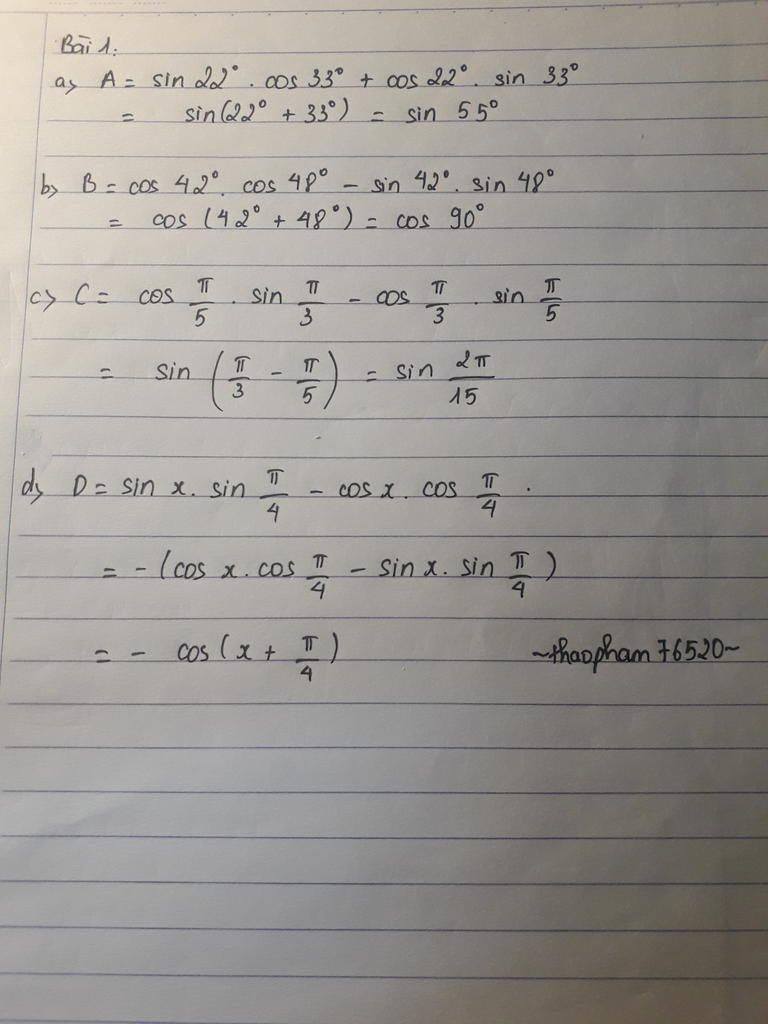 Bài 1:
a, A = sin 22° . cos 33° + cos 22° . sin 33°
= sin(22° + 33°) = sin 55°
b, B = cos 42° . cos 48° - sin 42° . sin 48°
= cos (42° + 48°) = cos 90°
c, C = cos π/5 . sin π/3 - cos π/3 . sin π/5
= sin (π/3 - π/5) = sin 2π/15
d, D = sin x . sin π/4 - cos x . cos π/4 .
= - (cos x . cos π/4 - sin x . sin π/4)
= - cos (x + π/4) ~thaopham76520~